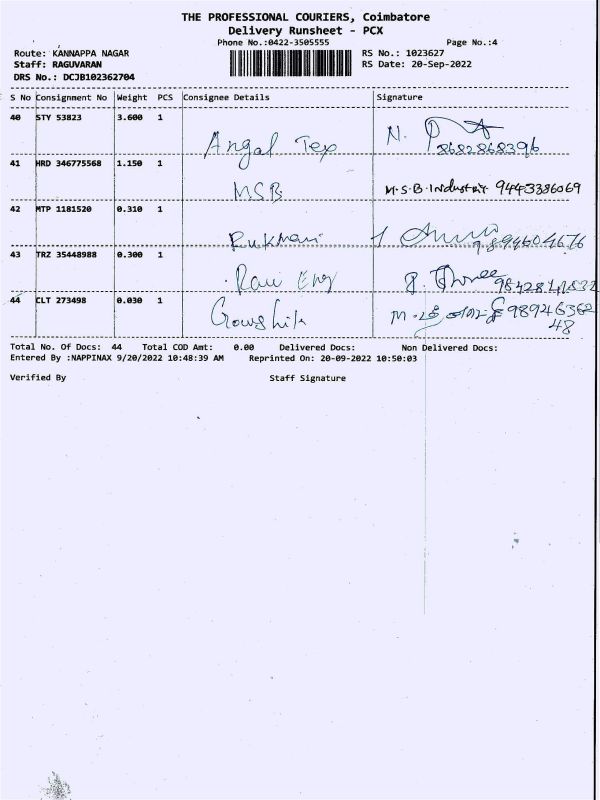 THE PROFESSIONAL COURIERS, Coimbatore
Delivery Runsheet - PCX
Phone No.:0422-3505555 Page No.:4
Route: KANNAPPA NAGAR RS No.: 1023627
Staff: RAGUVARAN RS Date: 20-Sep-2022
DRS No.: DCJB102362704
S No Consignment No Weight PCS Consignee Details Signature
40 STY 53823 3.600 1
Angal Tex N.
8682868396
41 HRD 346775568 1.150 1
MSB M.S.B.Industry 9443386069
42 MTP 1181520 0.310 1
Rukmani
43 TRZ 35448988 0.300 1
Ravi Eng
44 CLT 273498 0.030 1
Gowshik M. 98946362
48
Total No. Of Docs: 44 Total COD Amt: 0.00 Delivered Docs: Non Delivered Docs:
Entered By :NAPPINAX 9/20/2022 10:48:39 AM Reprinted On: 20-09-2022 10:50:03
Verified By Staff Signature